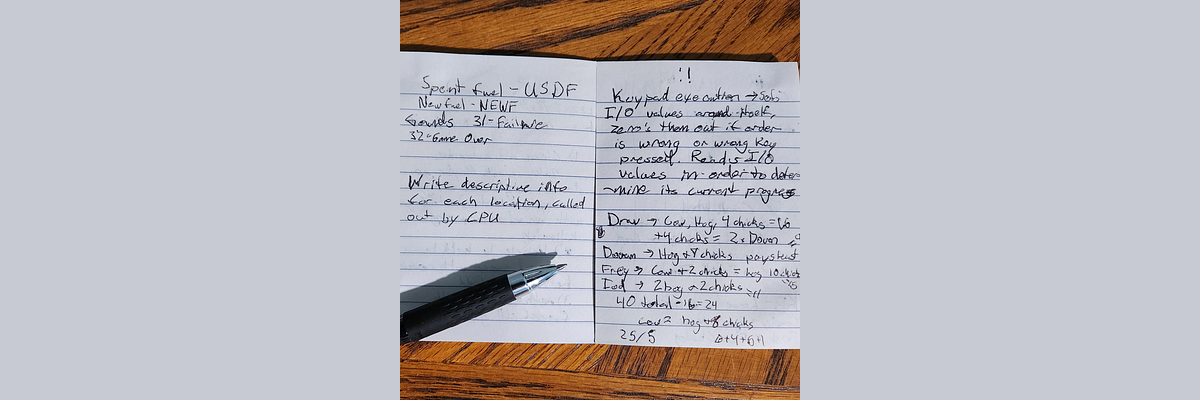 Spent fuel - USDF
New fuel - NEWF
Sounds 31-Failure
32-Game Over
Write descriptive info
for each location, called
out by CPU
!!
Keypad execution → Sets
I/O values around itself,
zero's them out if order
is wrong or wrong key
pressed. Reads I/O
values in order to deter
-mine its current progress
Draw → Cow, Hog, 4 chicks =
+4 chicks = 2x Down
→ Hog + 4 chicks
Frey → Cow + 2 chicks = hog 10 chicks
→ 2 hog 2 chicks =11
40 total -16=24
Cow = hog + chicks
25/5